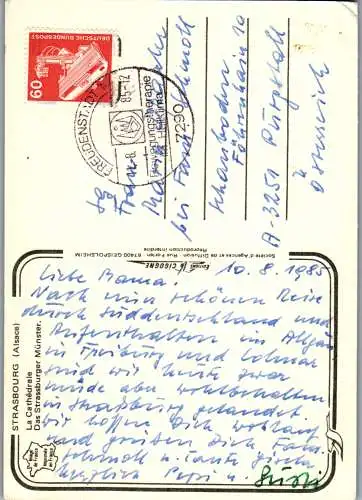 DEUTSCHE BUNDESPOST
60
FREUDENSTADT
8.85-12
7290
Bewegungstherapie
Frau
bei Fam. Schmoll
Schaubodner
Föhrenhain 10
A-3251 Purgstall
Österreich
Société d'Agences et de Diffusion - Rue Forlen - 67400 GEISPOLSHEIM
Reproduction interdite
Editions "LA CIGOGNE"
STRASBOURG (Alsace)
La Cathédrale
Das Strassburger Münster.
10.8.1985
Liebe Mama!
Nach einer schönen Reise
durch Süddeutschland und
Aufenthalten im Allgäu
in Freiburg und Colmar
sind wir heute zwar
müde aber wohlbehalten
in Straßburg gelandet.
Wir hoffen Dich wohlauf
und grüßen Dich, Fam.
Schmoll u. Tante
herzlich Pepi u. Susi